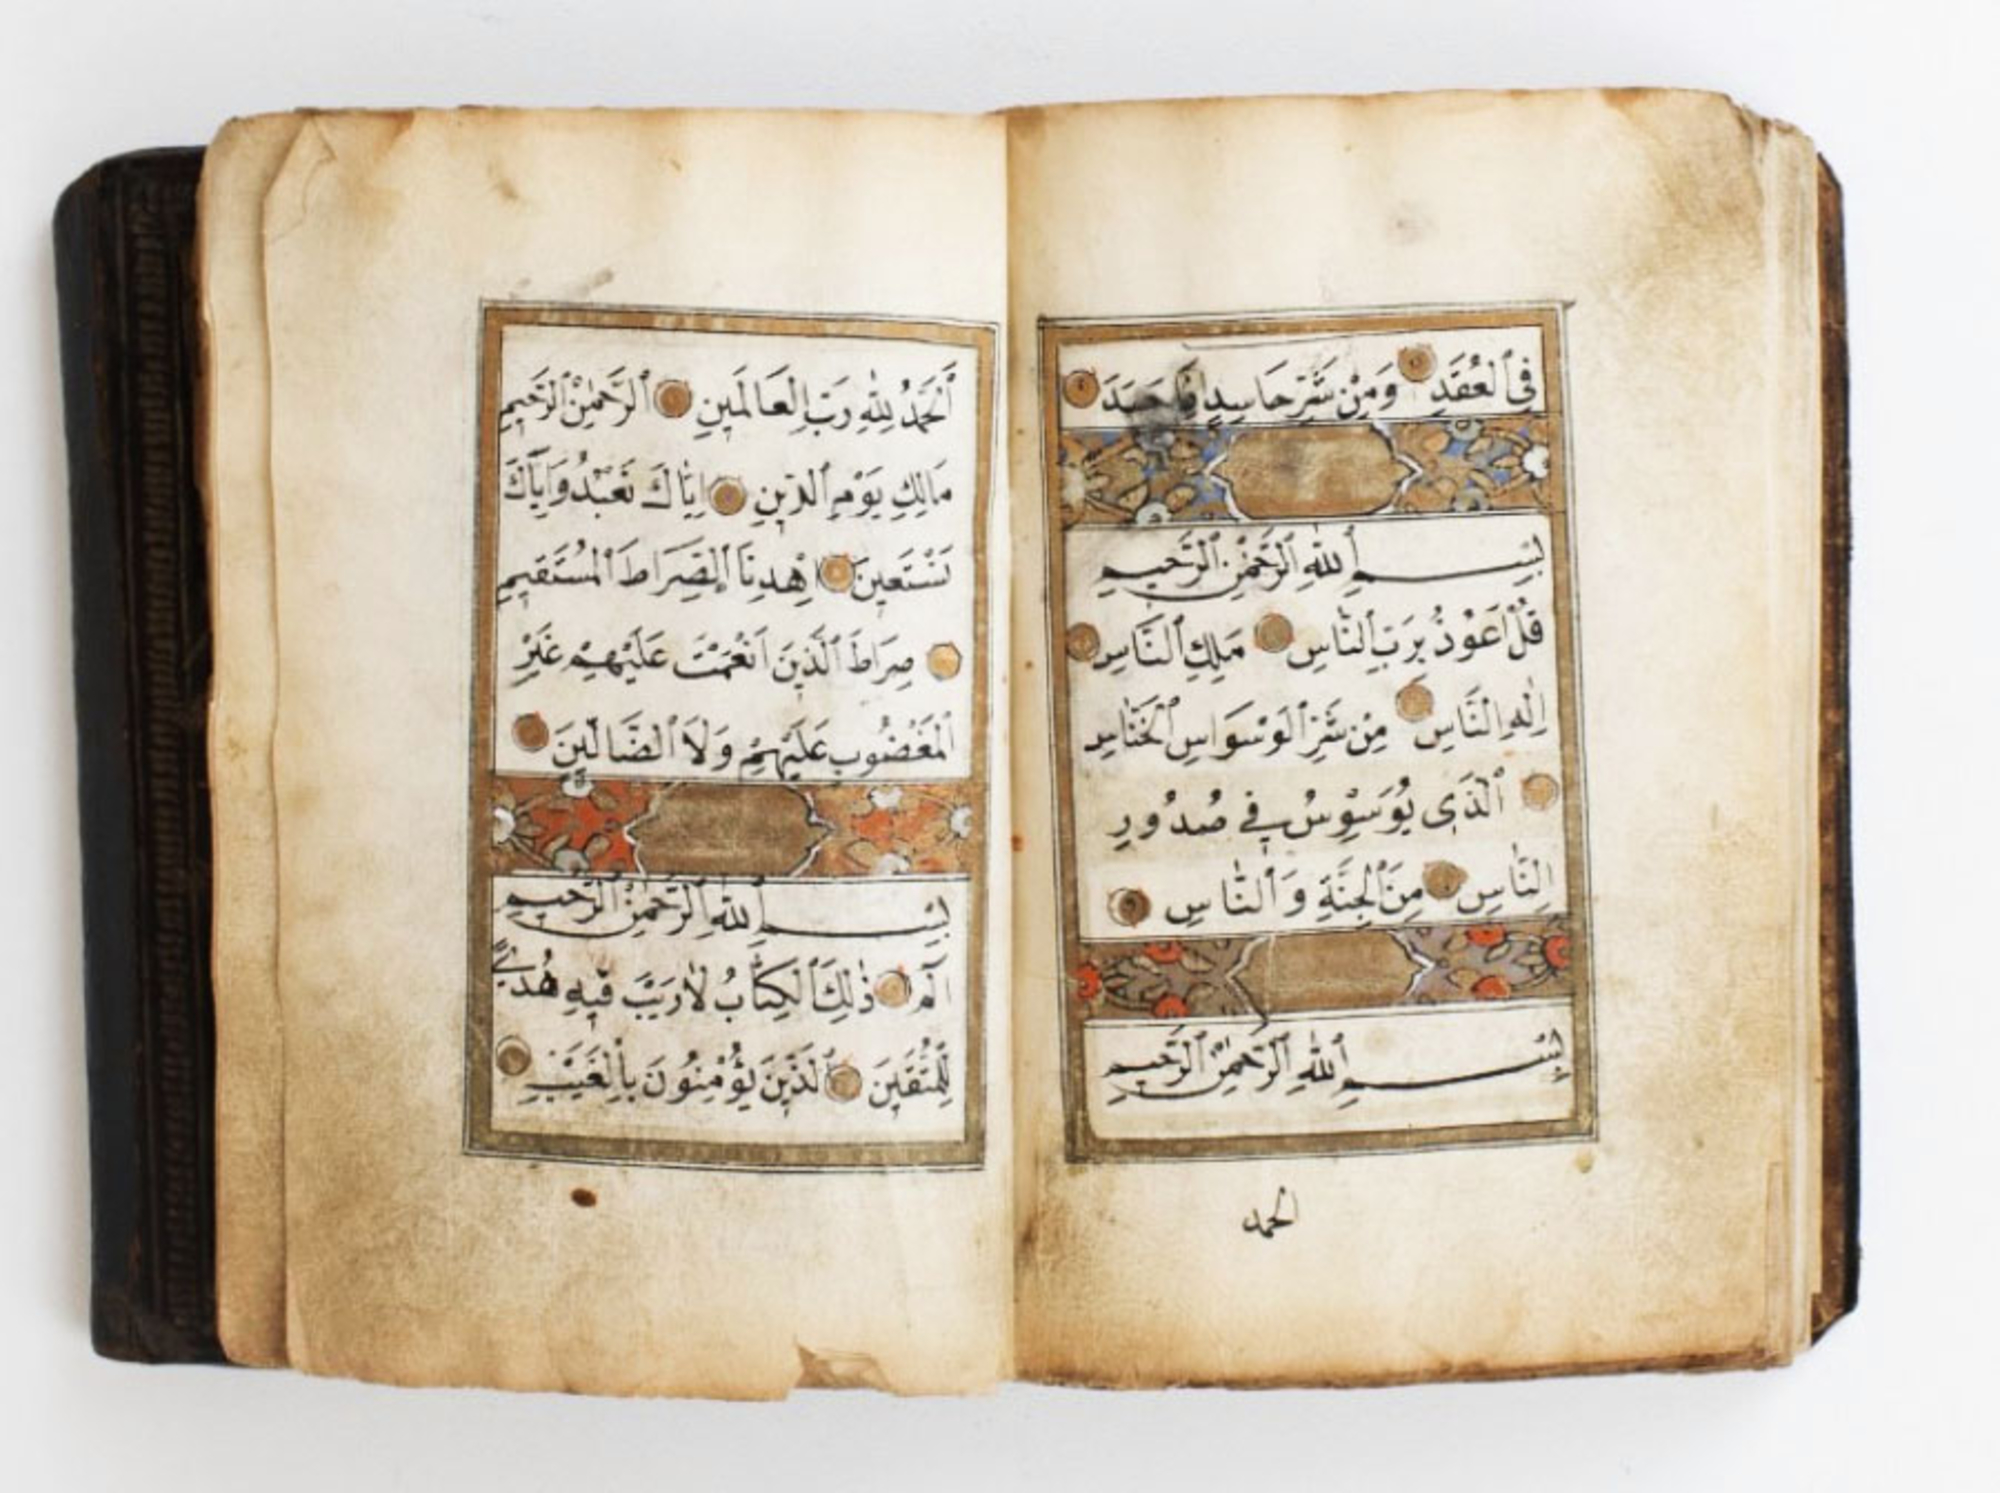 فِى ٱلْعُقَدِ وَمِنْ شَرِّ حَاسِدٍ اِذَا حَسَدَ
بِسْمِ ٱللّٰهِ ٱلرَّحْمٰنِ ٱلرَّحِيمِ
قُلْ اَعُوْذُ بِرَبِّ ٱلنَّاسِ مَلِكِ ٱلنَّاسِ
اِلٰهِ ٱلنَّاسِ مِنْ شَرِّ ٱلْوَسْوَاسِ ٱلْخَنَّاسِ
ٱلَّذِى يُوَسْوِسُ فِى صُدُورِ
ٱلنَّاسِ مِنَ ٱلْجِنَّةِ وَٱلنَّاسِ
بِسْمِ ٱللّٰهِ ٱلرَّحْمٰنِ ٱلرَّحِيمِ
الحمد
ٱلْحَمْدُ لِلّٰهِ رَبِّ ٱلْعَالَمِينَ ٱلرَّحْمٰنِ ٱلرَّحِيمِ
مَالِكِ يَوْمِ ٱلدِّينِ اِيَّاكَ نَعْبُدُ وَاِيَّاكَ
نَسْتَعِينُ اِهْدِنَا ٱلصِّرَاطَ ٱلْمُسْتَقِيمَ
صِرَاطَ ٱلَّذِينَ اَنْعَمْتَ عَلَيْهِمْ غَيْرِ
ٱلْمَغْضُوبِ عَلَيْهِمْ وَلَا ٱلضَّالِّينَ
بِسْمِ ٱللّٰهِ ٱلرَّحْمٰنِ ٱلرَّحِيمِ
الٓمٓ ذٰلِكَ ٱلْكِتَابُ لَا رَيْبَ فِيهِ هُدًى
لِلْمُتَّقِينَ ٱلَّذِينَ يُؤْمِنُونَ بِٱلْغَيْبِ